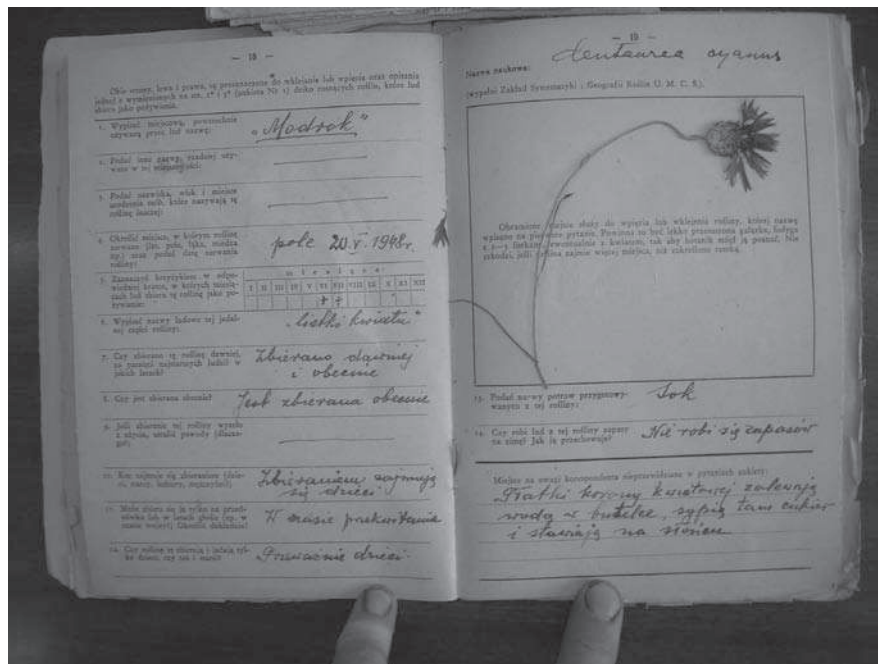 — 18 —
Obie strony, lewa i prawa, są przeznaczone do wklejania lub wpięcia oraz opisania
jednej z wymienionych na str. 1* i 5* (ankieta Nr 1) dziko rosnących roślin, które lud
zbiera jako pożywienie.
1. Wypisać miejscową, powszechnie
używaną przez lud nazwę:
„Modrok"
2. Podać inne nazwy, rzadziej uży-
wane w tej miejscowości:
3. Podać nazwiska, wiek i miejsce
urodzenia osób, które nazywają tę
roślinę inaczej:
4. Określić miejsce, w którym roślinę
zerwano (las, pole, łąka, miedza
itp.) oraz podać datę zerwania
rośliny:
pole 20.V.1948r.
5. Zaznaczyć krzyżykiem w odpo-
wiedniej kratce, w których miesią-
cach lud zbiera tę roślinę jako po-
żywienie:
miesiące:
I II III IV V VI VII VIII IX X XI XII
+ +
6. Wypisać nazwy ludowe tej jadal-
nej części rośliny:
„listki kwiatu"
7. Czy zbierano tę roślinę dawniej,
za pamięci najstarszych ludzi? w
jakich latach?
Zbierano dawniej
i obecnie
8. Czy jest zbierana obecnie?
Jest zbierana obecnie
9. Jeśli zbieranie tej rośliny wyszło
z użycia, ustalić powody (dlacze-
go?)
10. Kto zajmuje się zbieraniem (dzie-
ci, starcy, kobiety, mężczyźni?)
Zbieraniem zajmują
się dzieci.
11. Może zbiera się ją tylko na przed-
nówku lub w latach głodu (np. w
czasie wojny)? Określić dokładnie!
W czasie przekwitania
12. Czy roślinę tę zbierają i jadają tyl-
ko dzieci, czy też i starsi?
Przeważnie dzieci.
— 19 —
Nazwa naukowa:
Centaurea cyanus
(wypełni Zakład Systematyki i Geografii Roślin U. M. C. S.).
Obramione miejsce służy do wpięcia lub wklejenia rośliny, której nazwę
wpisano na pierwsze pytanie. Powinna to być lekko przesuszona gałązka, łodyga
z 2—3 listkami, ewentualnie z kwiatem, tak aby botanik mógł ją poznać. Nie
szkodzi, jeśli roślina zajmie więcej miejsca, niż zakreślono ramką.
13. Podać nazwy potraw przygotowy-
wanych z tej rośliny:
Sok
14. Czy robi lud z tej rośliny zapasy
na zimę? Jak ją przechowuje?
Nie robi się zapasów
Miejsce na uwagi korespondenta nieprzewidziane w pytaniach ankiety:
Płatki korony kwiatowej zalewają
wodą w butelce, sypią tam cukier
i stawiają na słońcu